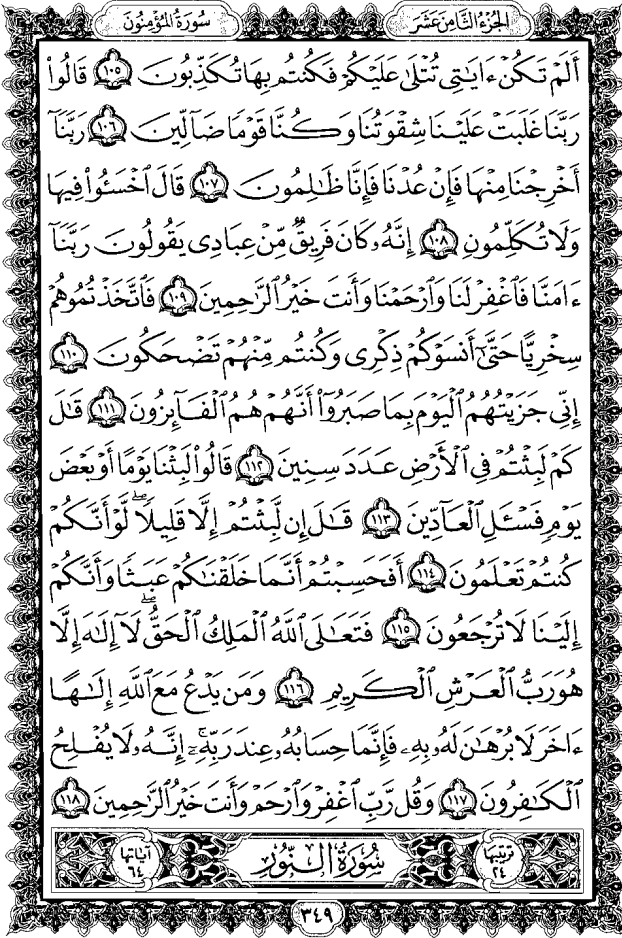 الجزء الثامن عشر
سورة المؤمنون
أَلَمْ تَكُنْ ءَايَٰتِى تُتْلَىٰ عَلَيْكُمْ فَكُنتُم بِهَا تُكَذِّبُونَ ١٠٥ قَالُوا۟
رَبَّنَا غَلَبَتْ عَلَيْنَا شِقْوَتُنَا وَكُنَّا قَوْمًا ضَآلِّينَ ١٠٦ رَبَّنَآ
أَخْرِجْنَا مِنْهَا فَإِنْ عُدْنَا فَإِنَّا ظَٰلِمُونَ ١٠٧ قَالَ ٱخْسَـُٔوا۟ فِيهَا
وَلَا تُكَلِّمُونِ ١٠٨ إِنَّهُۥ كَانَ فَرِيقٌ مِّنْ عِبَادِى يَقُولُونَ رَبَّنَآ
ءَامَنَّا فَٱغْفِرْ لَنَا وَٱرْحَمْنَا وَأَنتَ خَيْرُ ٱلرَّٰحِمِينَ ١٠٩ فَٱتَّخَذْتُمُوهُمْ
سِخْرِيًّا حَتَّىٰٓ أَنسَوْكُمْ ذِكْرِى وَكُنتُم مِّنْهُمْ تَضْحَكُونَ ١١٠
إِنِّى جَزَيْتُهُمُ ٱلْيَوْمَ بِمَا صَبَرُوٓا۟ أَنَّهُمْ هُمُ ٱلْفَآئِزُونَ ١١١ قَٰلَ
كَمْ لَبِثْتُمْ فِى ٱلْأَرْضِ عَدَدَ سِنِينَ ١١٢ قَالُوا۟ لَبِثْنَا يَوْمًا أَوْ بَعْضَ
يَوْمٍ فَسْـَٔلِ ٱلْعَآدِّينَ ١١٣ قَٰلَ إِن لَّبِثْتُمْ إِلَّا قَلِيلًا ۖ لَّوْ أَنَّكُمْ
كُنتُمْ تَعْلَمُونَ ١١٤ أَفَحَسِبْتُمْ أَنَّمَا خَلَقْنَٰكُمْ عَبَثًا وَأَنَّكُمْ
إِلَيْنَا لَا تُرْجَعُونَ ١١٥ فَتَعَٰلَى ٱللَّهُ ٱلْمَلِكُ ٱلْحَقُّ ۖ لَآ إِلَٰهَ إِلَّا
هُوَ رَبُّ ٱلْعَرْشِ ٱلْكَرِيمِ ١١٦ وَمَن يَدْعُ مَعَ ٱللَّهِ إِلَٰهًا
ءَاخَرَ لَا بُرْهَٰنَ لَهُۥ بِهِۦ فَإِنَّمَا حِسَابُهُۥ عِندَ رَبِّهِۦٓ ۚ إِنَّهُۥ لَا يُفْلِحُ
ٱلْكَٰفِرُونَ ١١٧ وَقُل رَّبِّ ٱغْفِرْ وَٱرْحَمْ وَأَنتَ خَيْرُ ٱلرَّٰحِمِينَ ١١٨
ترتيبها ٢٤ سُورَةُ النُّورِ آياتها ٦٤
٣٤٩